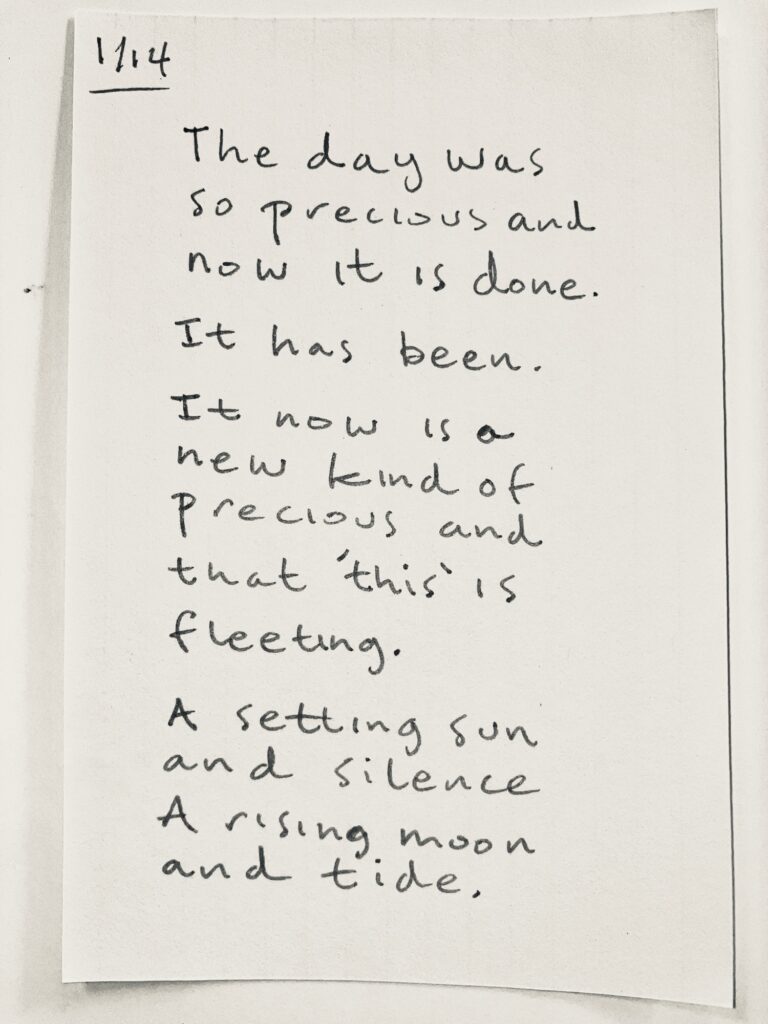 1/14
The day was
so precious and
now it is done.
It has been.
It now is a
new kind of
precious and
that 'this' is
fleeting.
A setting sun
and silence
A rising moon
and tide.